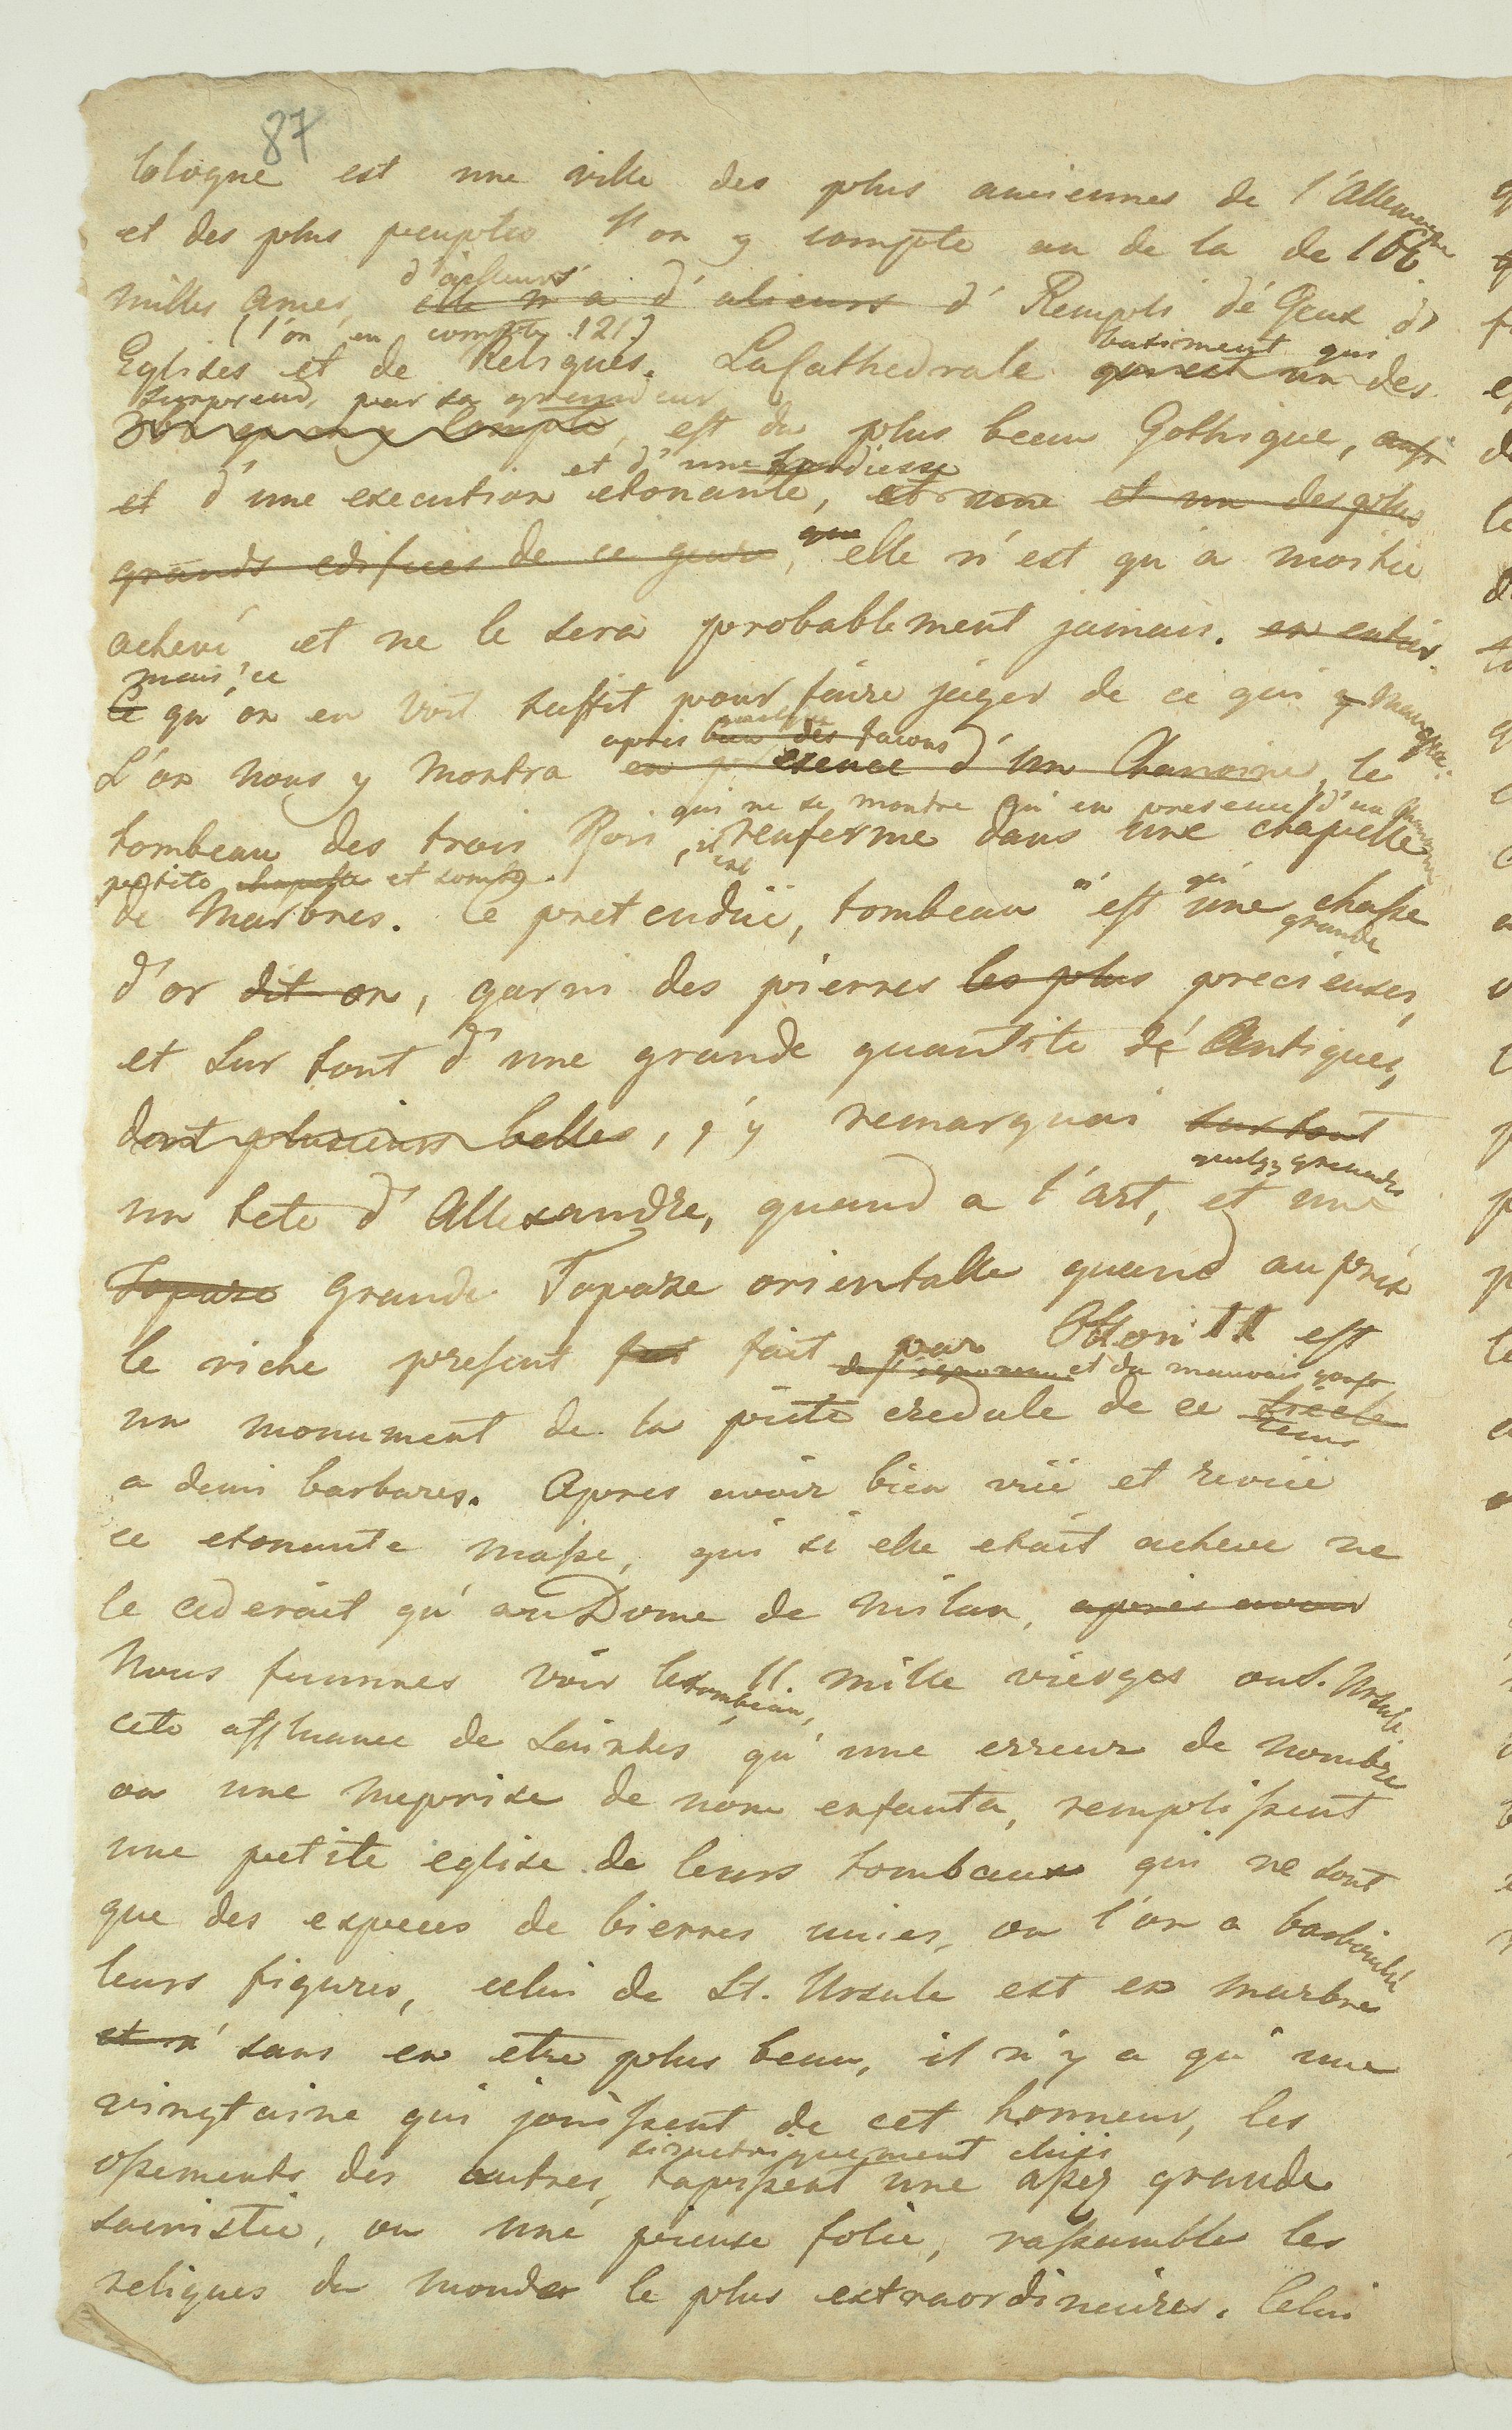 87
Cologne est une ville des plus anciennes de l'Allemagne
et des plus peuplés l'on y compte au de la de 100
milles ames,
d'ailleurs
elle n'a d'alieurs d'Rempli dé Geux d
(l'on en compte 121)
Eglises et de Reliques. La Cathedrale qui est un des
batiment qui
surprend, par sa grandeur
est du plus beau Gothique, aussi
et d'une hardiesse
et d'une execution etonante, et une et un des plus
grands edifices de ce genre, que elle n'est qu'a moitie
achevé et ne le sera probablement jamais. en entier.
mais ce
Ce qu'on en voit suffit pour faire juger de ce qui y manque.
après des facons
L'on nous y montra en presence d'un Chanoine, le
qui ne se montre qu'en presence d'un Chanoine
tombeau des trois Rois, il est renferme dans une chapelle
petite chapelle et sombre.
de Marbres. Ce pretenduë, tombeau n'est qu' une grande chasse
d'or dit on, garni des pierres les plus precieuses,
et sur tout d'une grande quantite dé Antiques,
dont plusieurs belles, j'y remarquai sur tout
quelqs grandes
un tete d'Allexandre, quand a l'art, et une
Topaze Grande Topaze orientalle quand au prix
le riche present fut fait par Otton II est
de l'ignorance et du mauvais gout
un monument de la piete credule de ce siecle
tems
a demi barbares. Apres avoir bien vüe et revüe
ce etonante masse, qui si elle etait acheve ne
le cederait qu'au Dome de Milan, après avoir
Nous fummes voir les 11. mille vierges ou S. Ursule
tombeau,
cete affluance de Saintes qu'une erreur de nombre
ou une meprise de nom enfanta, remplissent
une petite eglise de leurs tombeaux qui ne sont
que des especes de bierres unies, ou l'on a barbouillé
leurs figures, celui de St. Ursule est en marbre
et n' sans en etre plus beau, il n'y a qu'une
vingtaine qui jouissent de cet honneur, les
simetriquement
ossements des autres, tapissent une assez grande
sacristie, ou une pieuse folie, rassembla les
reliques du monde le plus extraordineires. Celui